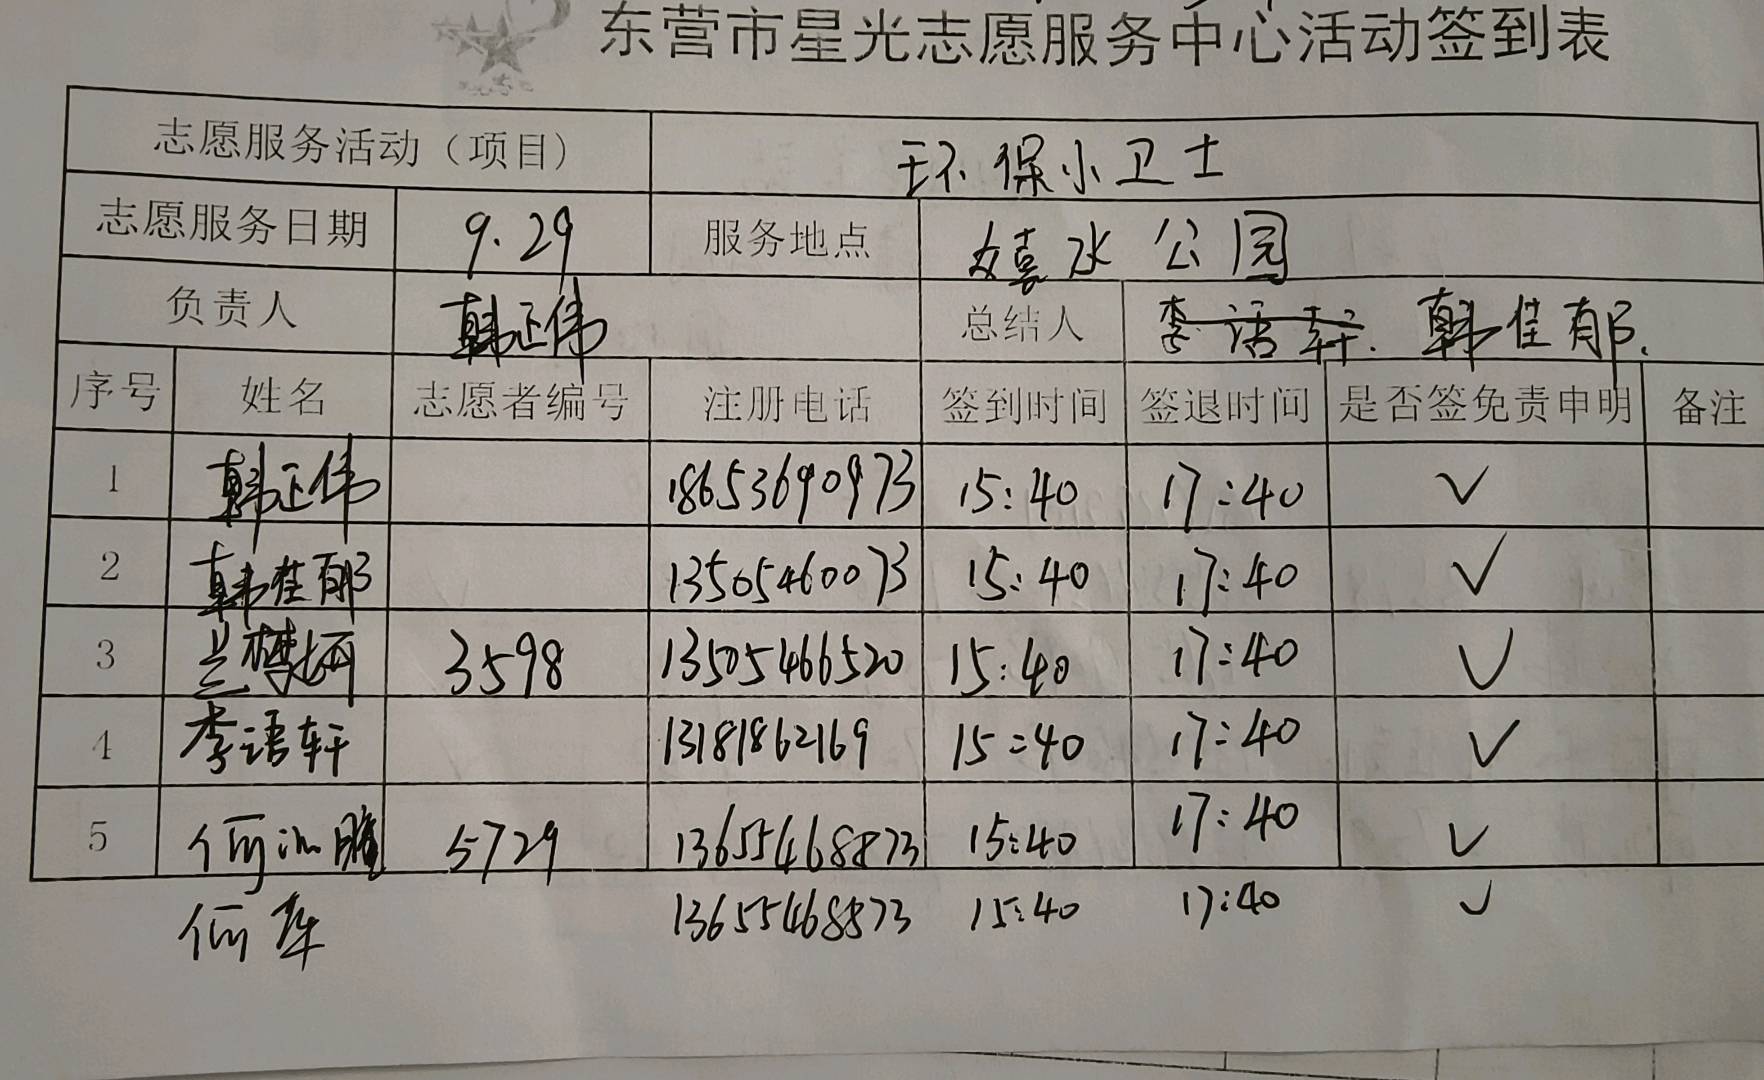 东营市星光志愿服务中心活动签到表
志愿服务活动（项目） 环保小卫士
志愿服务日期 9.29 服务地点 嬉水公园
负责人 韩正伟 总结人 李语轩. 韩佳郁.
序号 姓名 志愿者编号 注册电话 签到时间 签退时间 是否签免责申明 备注
1 韩正伟 18653690973 15:40 17:40 ✓
2 韩佳郁 13505460073 15:40 17:40 ✓
3 3598 13505466520 15:40 17:40 ✓
4 李语轩 13181862169 15:40 17:40 ✓
5 何 5729 13655468873 15:40 17:40 ✓
何 13655468873 15:40 17:40 ✓